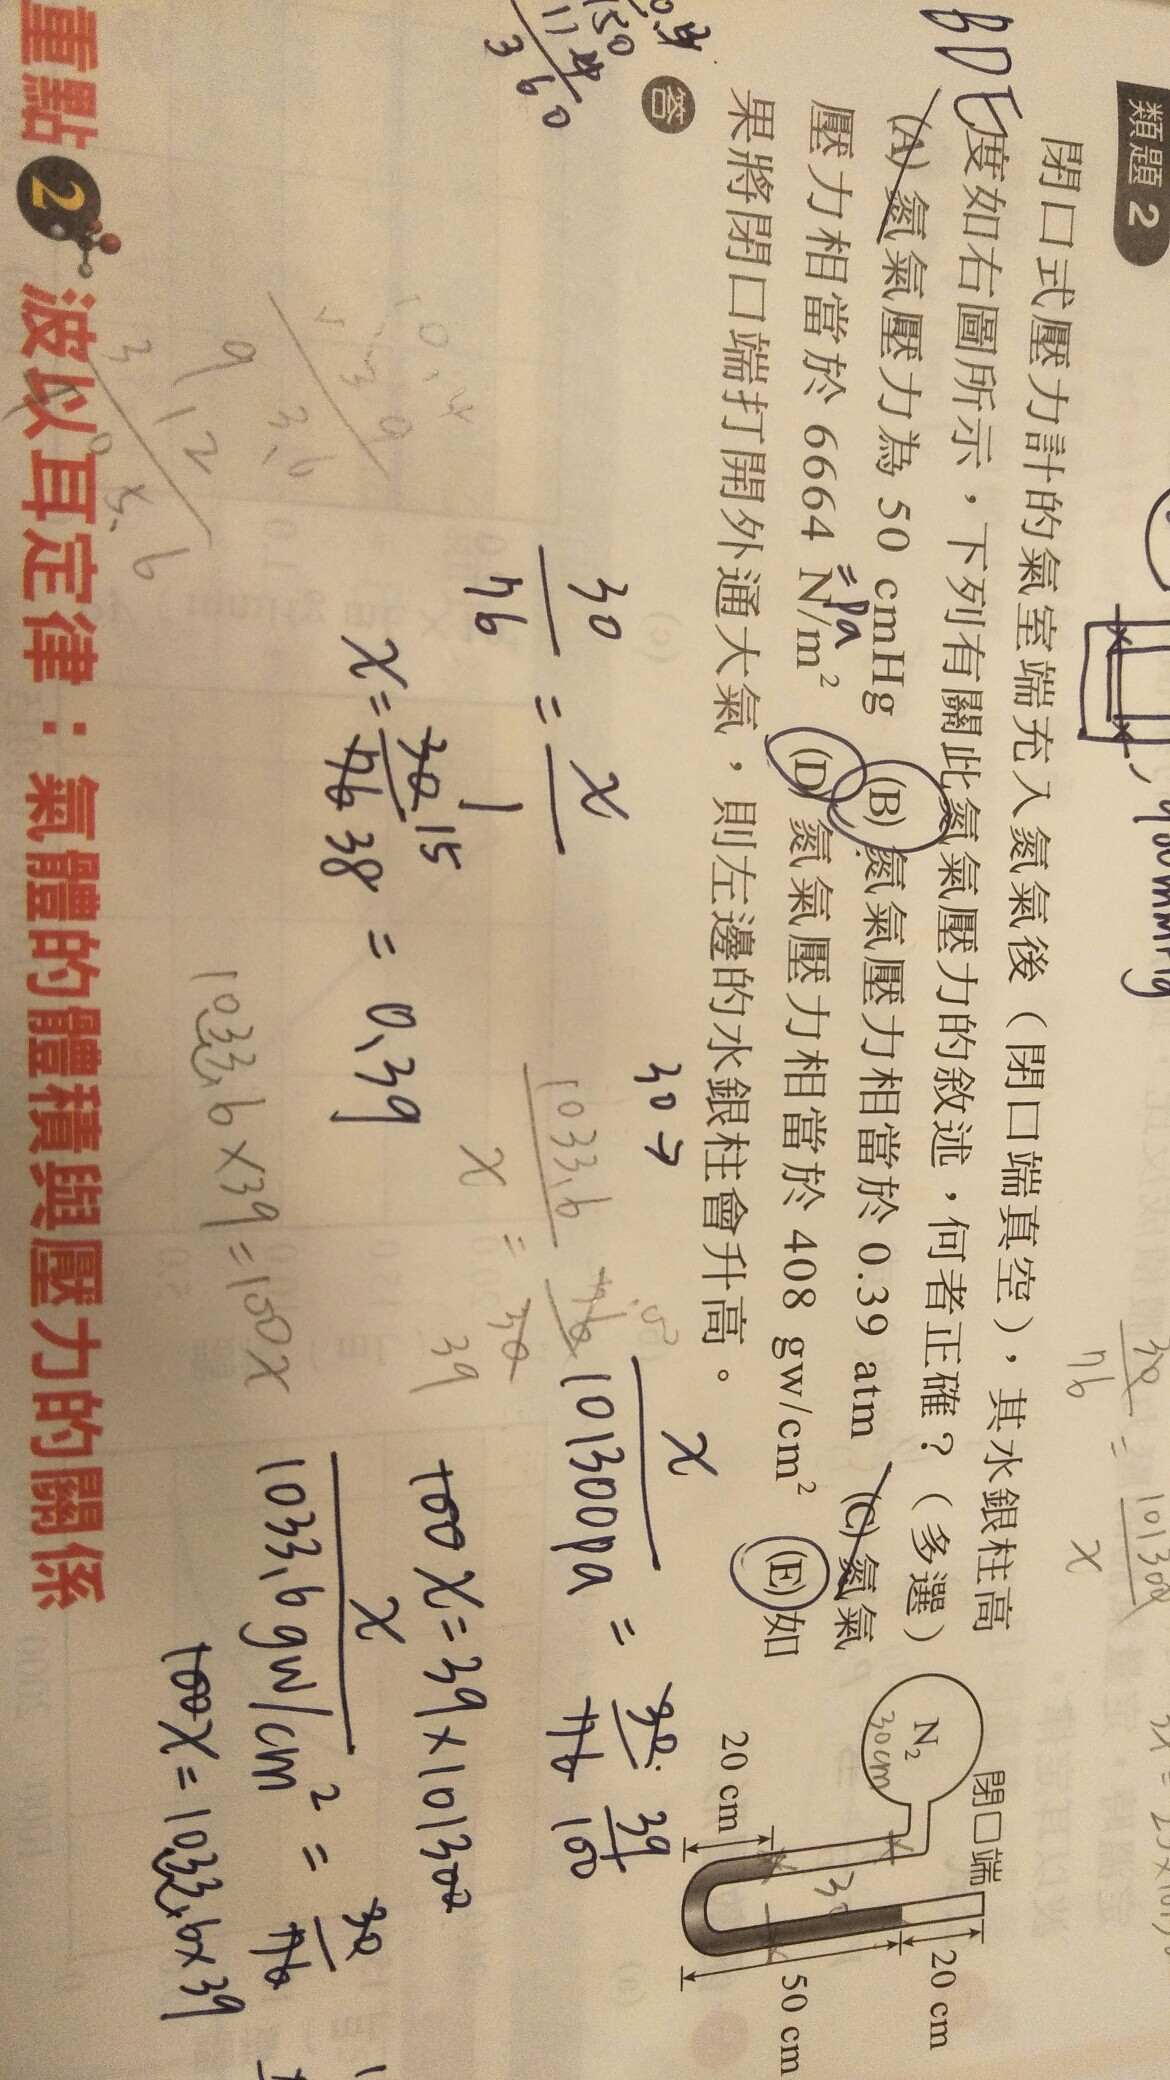 類題 2
, 900mmHg
閉口式壓力計的氣室端充入氮氣後（閉口端真空），其水銀柱高
度如右圖所示，下列有關此氮氣壓力的敘述，何者正確？（多選）
BDE
(A) 氮氣壓力為 50 cmHg (B) 氮氣壓力相當於 0.39 atm (C) 氮氣
壓力相當於 6664 N/m² (D) 氮氣壓力相當於 408 gw/cm² (E) 如
=pa
果將閉口端打開外通大氣，則左邊的水銀柱會升高。
答
閉口端
N₂
30cm
20 cm
20 cm
50 cm
30
30/76 = 101300/x
30/76 = x/1
x = 30/76 15/38 = 0.39
1033.6/x = 76/30
39
1033.6 × 39 = 100x
x/101300pa = 30/76 39/100
100x = 39 × 101300
x/1033.6 gw/cm² = 30/76
100x = 1033.6 × 39
重點 2 波以耳定律：氣體的體積與壓力的關係